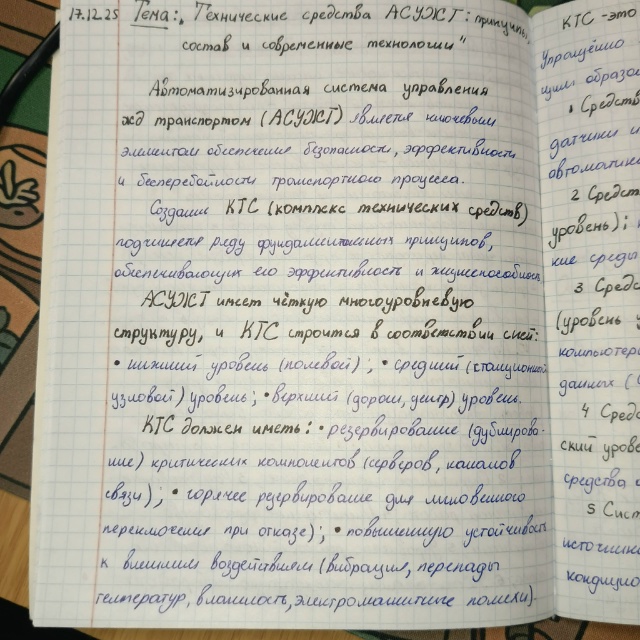 17.12.25 Тема: "Технические средства АСУЖТ: принципы,
состав и современные технологии"
Автоматизированная система управления
жд транспортом (АСУЖТ) является ключевым
элементом обеспечения безопасности, эффективности
и бесперебойности транспортного процесса.
Создание КТС (комплекс технических средств)
подчиняется ряду фундаментальных принципов,
обеспечивающих его эффективность и жизнеспособность
АСУЖТ имеет чёткую многоуровневую
структуру, и КТС строится в соответствии с ней:
• нижний уровень (полевой); • средний (станционный
узловой) уровень; • верхний (дорож, центр) уровень.
КТС должен иметь: • резервирование (дублирова-
ние) критических компонентов (серверов, каналов
связи); • горячее резервирование для мгновенного
переключения при отказе); • повышенную устойчивость
к внешним воздействиям (вибрация, перепады
температур, влажность, электромагнитные помехи).
КТС - это
упрощённо
щим образом
1 Средств
датчики и
автоматики
2 Средст
уровень);
кие среды
3 Средс
(уровень у
компьютеры
данных (
4 Средс
ский уровень
средства
5 Сист
источники
кондицио